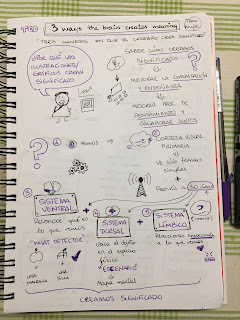 TED
3 ways the brain creates meaning
"TRES MANERAS EN QUE EL CEREBRO CREA SIGNIFICADO"
¿POR QUÉ LAS
ILUSTRACIONES/
GRÁFICOS CREAN
SIGNIFICADO?
SABER CÓMO CREAMOS
SIGNIFICADO
MEJORAR LA COMUNICACIÓN
Y ENSEÑANZA
MEJORAR PROC. DE
PENSAMIENTO Y
COLABORAR JUNTOS
¿
?
VEMOS
CORTEZA VISUAL
PRIMARIA
VE SÓLO FORMAS
SIMPLES
+
REENVÍO A 30 ÁREAS
SISTEMA
VENTRAL
RECONOCE QUÉ ES
LO QUE VEMOS
"WHAT DETECTOR"
UNA
UNA
SILLA
+
SISTEMA
DORSAL
EN EL ESPACIO
FÍSICO
ESCENARIO
MAPA MENTAL
+
SISTEMA
LÍMBICO
REACCIONA
A LO QUE VEMOS
CREAMOS SIGNIFICADO